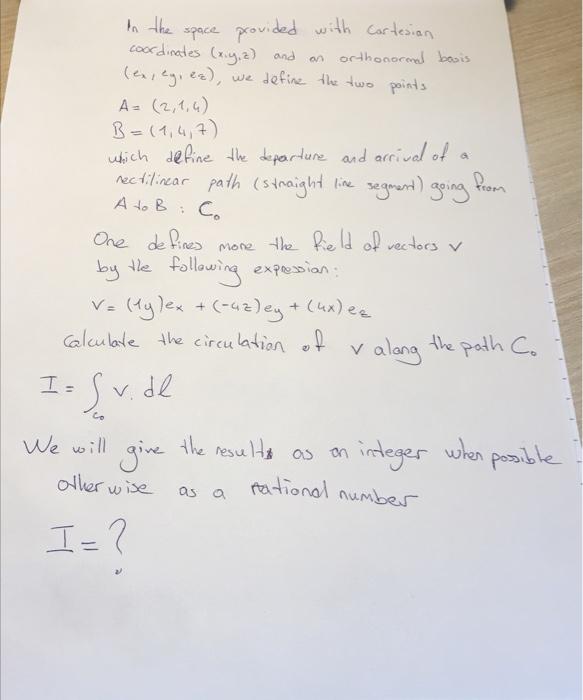 In the space provided with Cartesian
coordinates (x,y,z) and an orthonormal basis
(ex, ey, ez), we define the two points
A = (2,1,4)
B = (1,4,7)
which define the departure and arrival of a
rectilinear path (straight line segment) going from
A to B : C₀
One defines more the field of vectors v
by the following expression:
V = (1y)ex + (-4z)ey + (4x)ez
Calculate the circulation of v along the path C₀
I = ∫C₀ v. dl
We will give the results as an integer when possible
otherwise as a rational number
I = ?